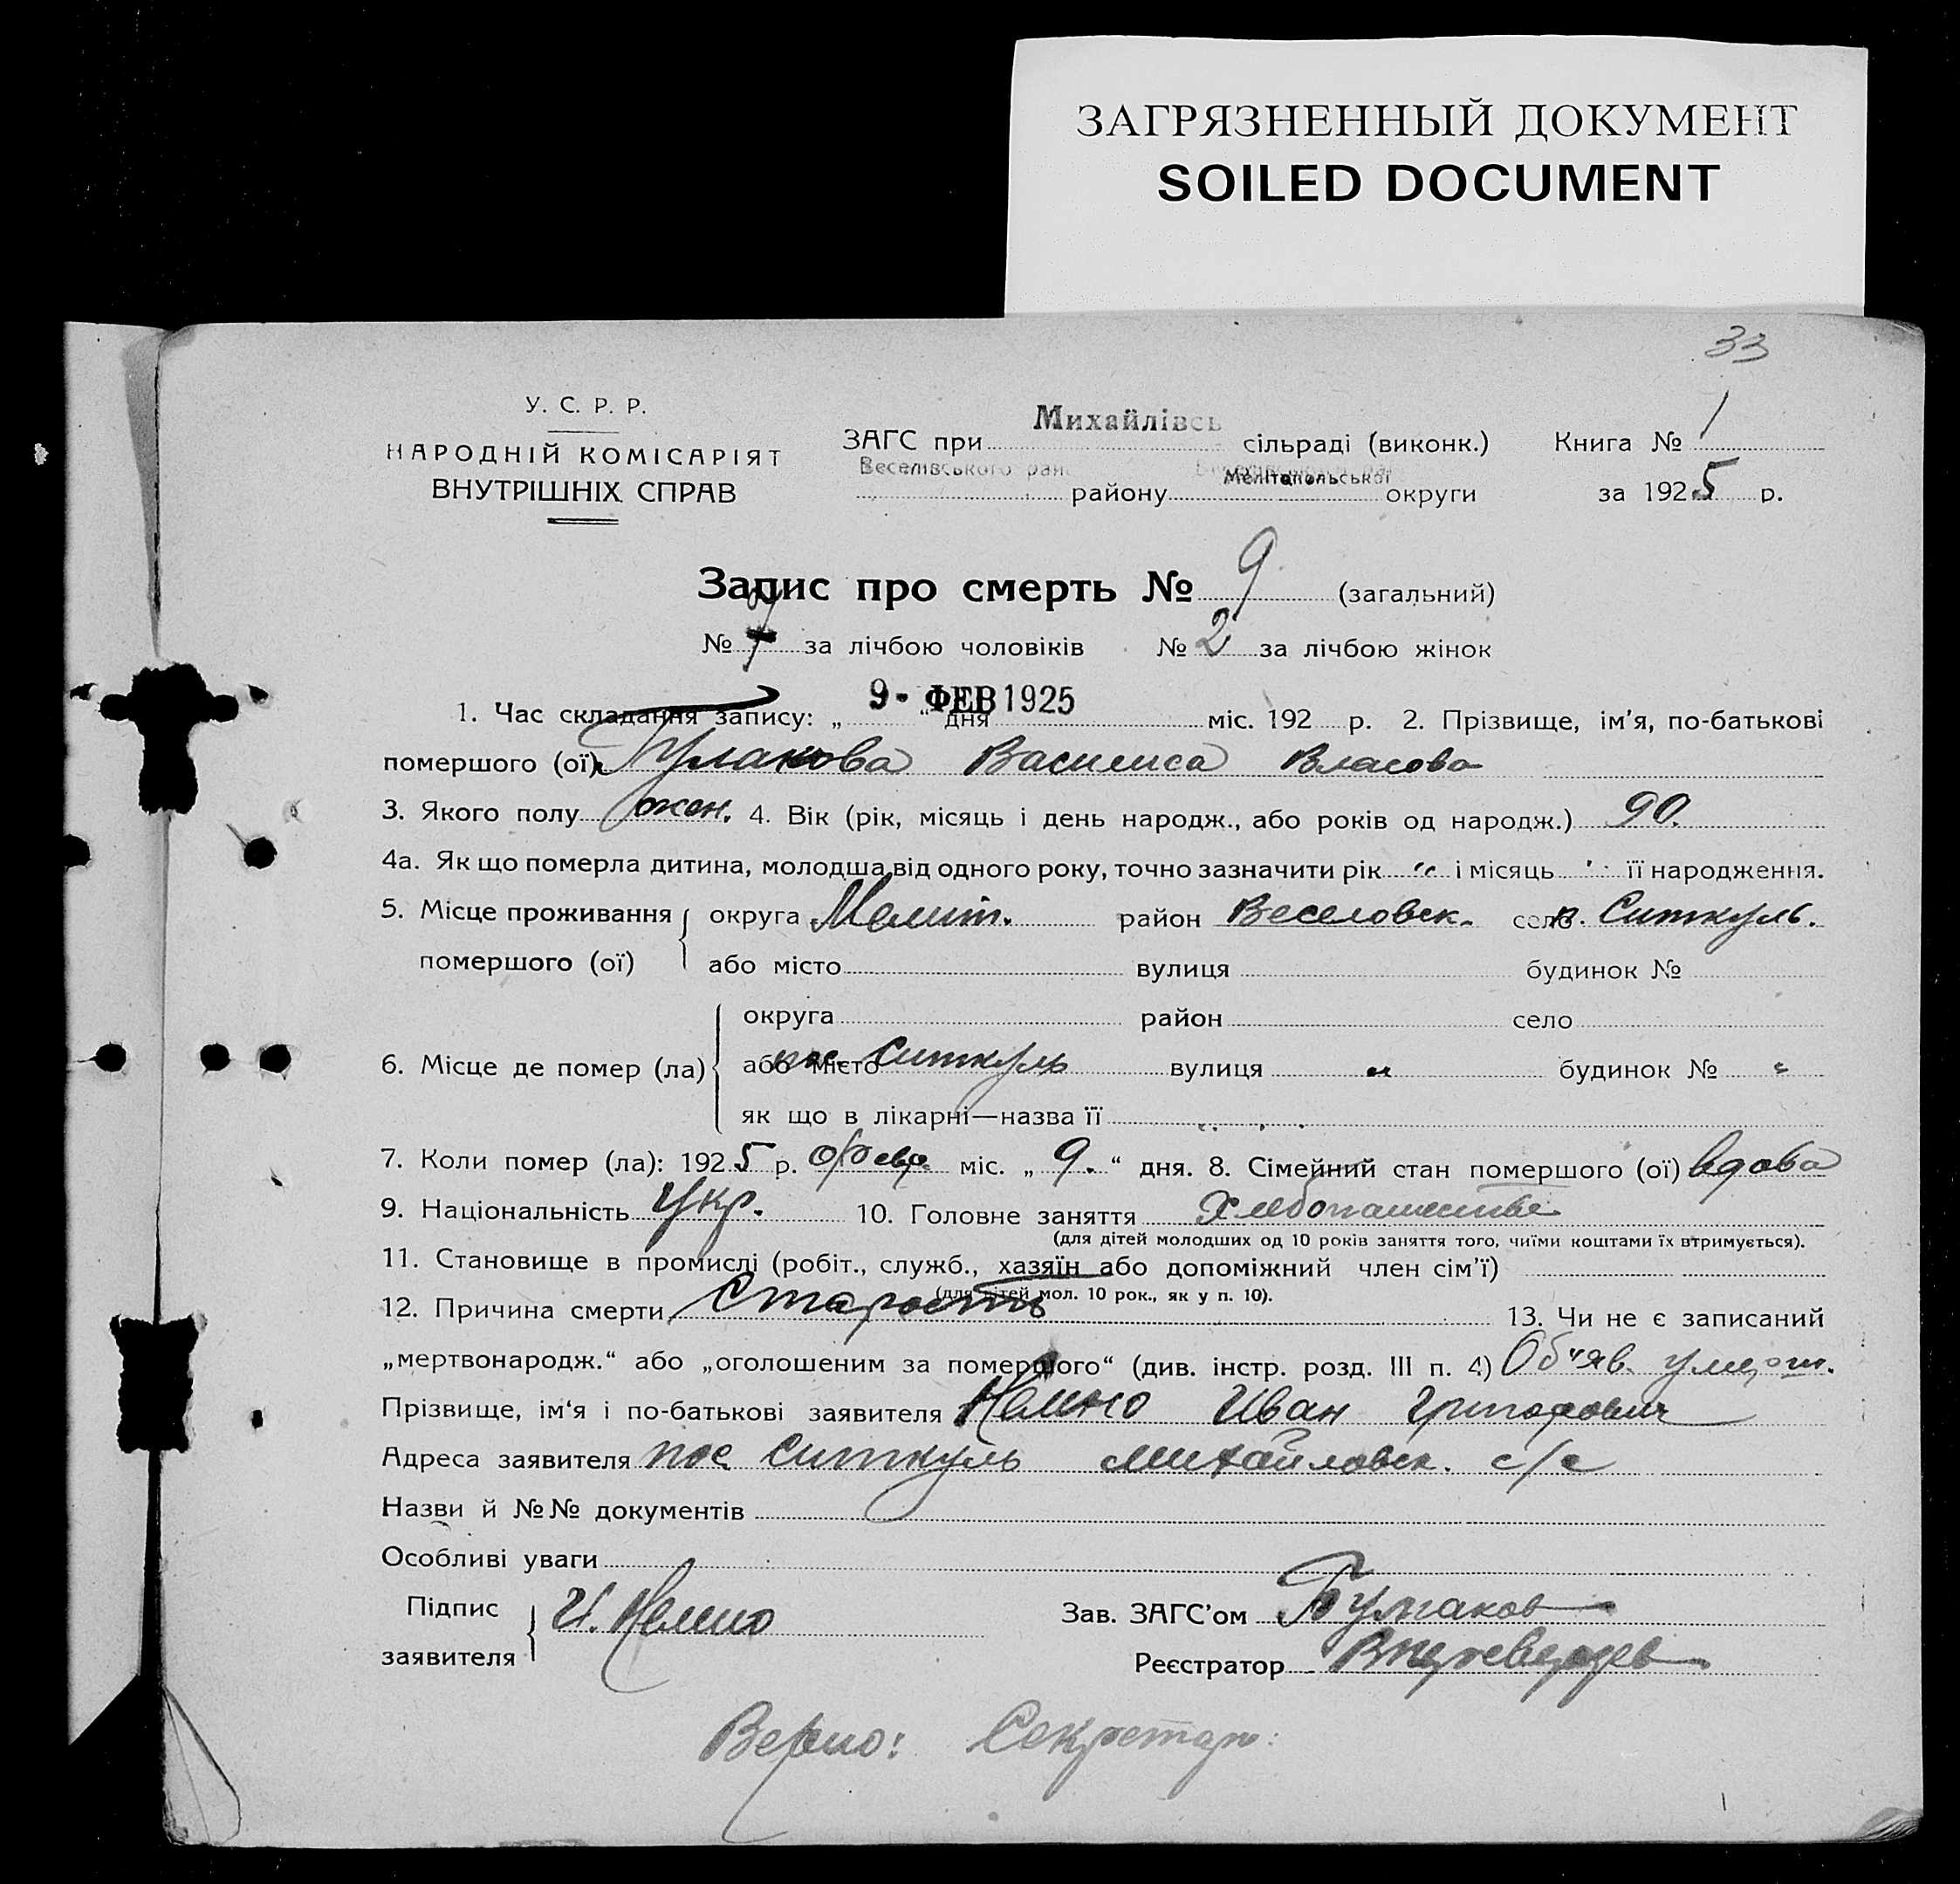 ЗАГРЯЗНЕННЫЙ ДОКУМЕНТ
SOILED DOCUMENT
33
У. С. Р. Р.
НАРОДНІЙ КОМІСАРІЯТ
ВНУТРІШНІХ СПРАВ
ЗАГС при Михайлівсь сільраді (виконк.)
Веселівського району Мелітопольської округи
Книга № 1
за 1925 р.
Запис про смерть № 9 (загальний)
№ 7 за лічбою чоловіків № 2 за лічбою жінок
1. Час складання запису: „ 9 - ФЕВ 1925 “ дня міс. 192 р. 2. Прізвище, ім’я, по-батькові
помершого (ої) Булакова Василиса Власова
3. Якого полу жен. 4. Вік (рік, місяць і день народж., або років од народж.) 90.
4а. Як що померла дитина, молодша від одного року, точно зазначити рік „ і місяць „ її народження.
5. Місце проживання помершого (ої) округа Мелит. район Веселовск. село п. Ситкуль.
або місто вулиця будинок №
6. Місце де помер (ла) округа район село
або місто пос. Ситкуль вулиця „ будинок № „
як що в лікарні—назва її
7. Коли помер (ла): 1925 р. февр. міс. „ 9. “ дня. 8. Сімейний стан помершого (ої) вдова
9. Національність Укр. 10. Головне заняття Хлебопашество
(для дітей молодших од 10 років заняття того, чиїми коштами їх втримується).
11. Становище в промислі (робіт., служб., хазяїн або допоміжний член сім’ї)
(для дітей мол. 10 рок., як у п. 10).
12. Причина смерти Старость 13. Чи не є записаний
„мертвонародж.“ або „оголошеним за помершого“ (див. інстр. розд. III п. 4) Об'яв. умерш.
Прізвище, ім‘я і по-батькові заявителя Иван Григорович
Адреса заявителя пос Ситкуль Михайловск. с/с
Назви й №№ документів
Особливі уваги
Підпис заявителя И.
Зав. ЗАГС’ом Булгаков
Реєстратор
Верно: Секретарь: